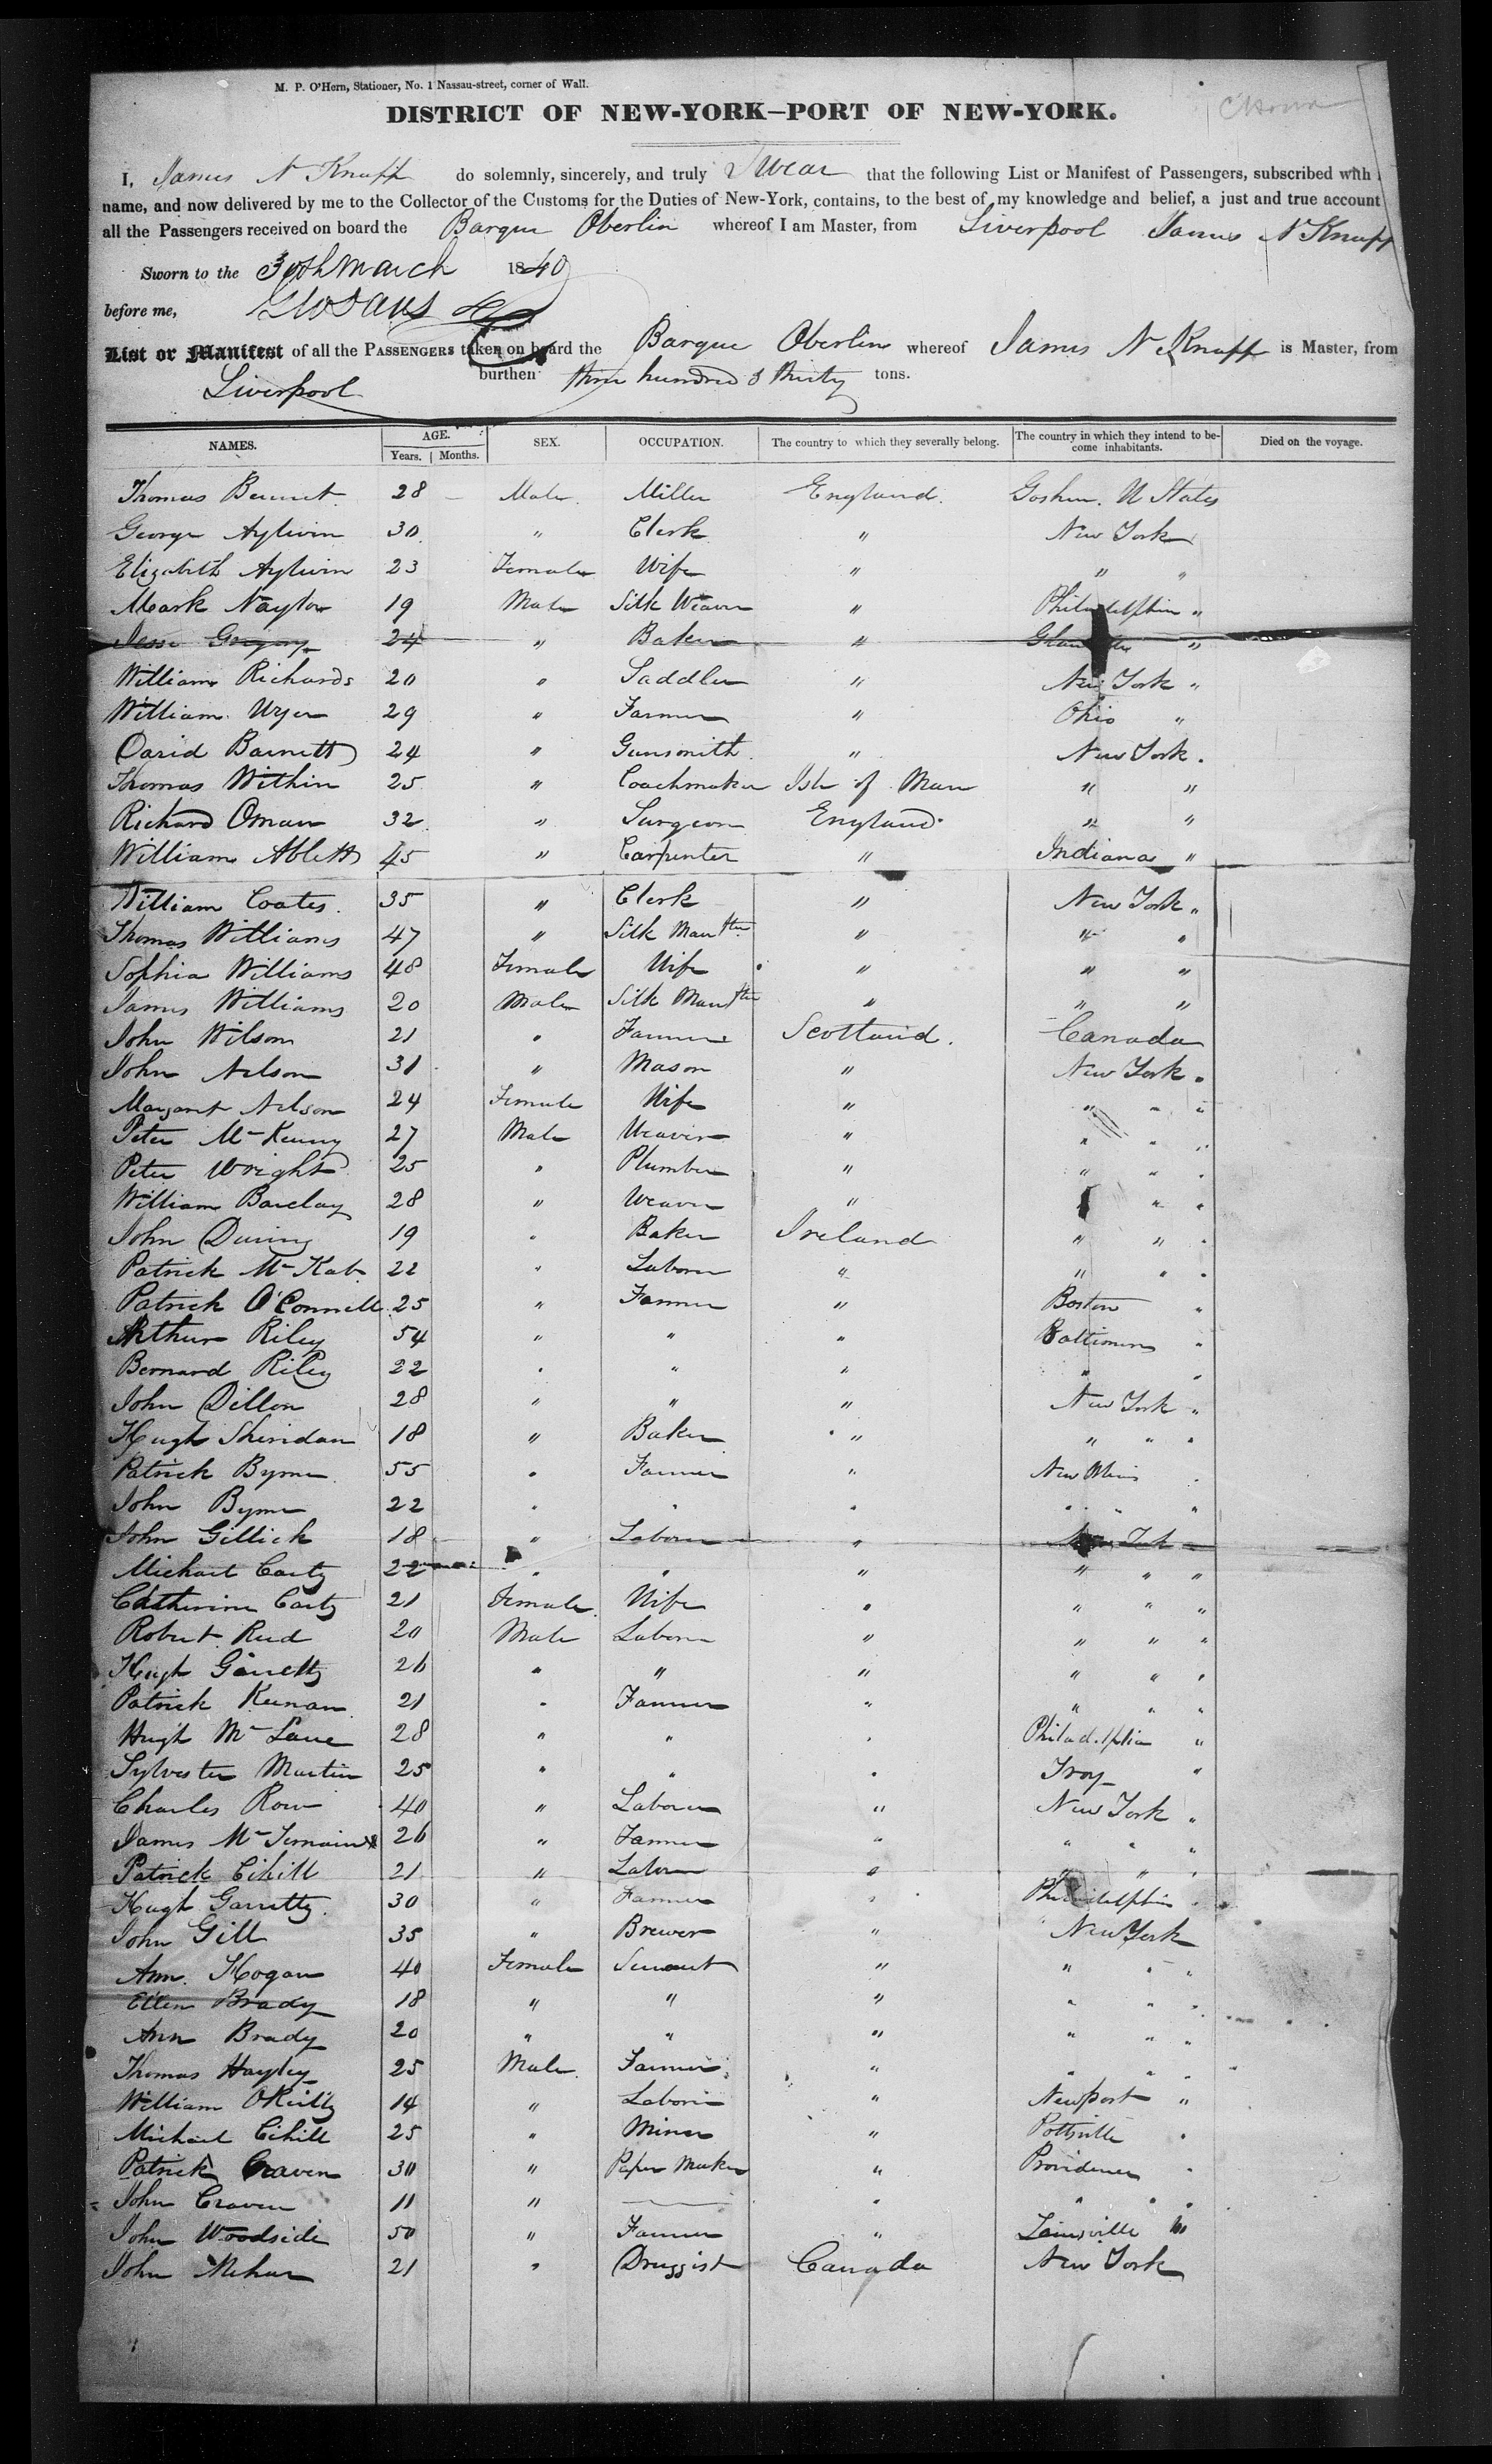 M. P. O'Hern, Stationer, No. 1 Nassau-street, corner of Wall.
DISTRICT OF NEW-YORK—PORT OF NEW-YORK.
I, James N Knapp do solemnly, sincerely, and truly Swear that the following List or Manifest of Passengers, subscribed with
name, and now delivered by me to the Collector of the Customs for the Duties of New-York, contains, to the best of my knowledge and belief, a just and true account
all the Passengers received on board the Barque Oberlin whereof I am Master, from Liverpool James N Knapp
Sworn to the 30th March 1840
before me,
List or Manifest of all the PASSENGERS taken on board the Barque Oberlin whereof James N Knapp is Master, from
Liverpool burthen three hundred & thirty tons.
NAMES. AGE. Years. Months. SEX. OCCUPATION. The country to which they severally belong. The country in which they intend to become inhabitants. Died on the voyage.
Thomas Bennet 28 – Male Miller England. Goshen. U States
George Aylwin 30 " Clerk " New York
Elizabeth Aylwin 23 Female Wife " " "
Mark Naylor 19 Male Silk Weaver " Philadelphia "
Jesse Gregory 24 " Baker " "
William Richards 20 " Saddler " New York "
William Wyer 29 " Farmer " Ohio "
David Barnett 24 " Gunsmith " New York.
Thomas Within 25 " Coachmaker Isle of Man " "
Richard Oman 32 " Surgeon England " "
William Ablett 45 " Carpenter " Indiana "
William Coates 35 " Clerk " New York "
Thomas Williams 47 " Silk Manftr " " "
Sophia Williams 48 Female Wife " " "
James Williams 20 Male Silk Manftr " " "
John Wilson 21 " Farmer Scotland. Canada
John Nelson 31 " Mason " New York "
Margaret Nelson 24 Female Wife " " " "
Peter McKenny 27 Male Weaver " " " "
Peter Wright 25 " Plumber " " " "
William Barclay 28 " Weaver " " "
John Duning 19 " Baker Ireland " " "
Patrick McKabe 22 " Laborer " " " "
Patrick O'Connell 25 " Farmer " Boston "
Arthur Riley 54 " " " Baltimore "
Bernard Riley 22 " " " " "
John Dillon 28 " " " New York "
Hugh Sheridan 18 " Baker " " " "
Patrick Byrne 55 " Farmer " New Orleans "
John Byrne 22 " " " " " "
John Gillick 18 " Laborer " New York
Michael Carty 22 " " " " " "
Catherine Carty 21 Female Wife " " " "
Robert Reed 20 Male Laborer " " " "
Hugh Garretty 26 " " " " " "
Patrick Keenan 21 " Farmer " " " "
Hugh McLane 28 " " " Philadelphia "
Sylvester Martin 25 " " " Troy "
Charles Row 40 " Laborer " New York "
James 26 " Farmer " " " "
Patrick Cihill 21 " Laborer " " " "
Hugh Garretty 30 " Farmer " Philadelphia "
John Gill 35 " Brewer " New York
Ann Hogan 40 Female Servant " " " "
Ellen Brady 18 " " " " " "
Ann Brady 20 " " " " " "
Thomas Hayley 25 Male Farmer " " " "
William O'Reilly 14 " Laborer " Newport "
Michael Cihill 25 " Miner " Pottsville "
Patrick Craven 30 " Paper Maker " Providence "
John Craven 11 " — " " " "
John Woodside 50 " Farmer " Louisville "
John Mehar 21 " Druggist Canada New York